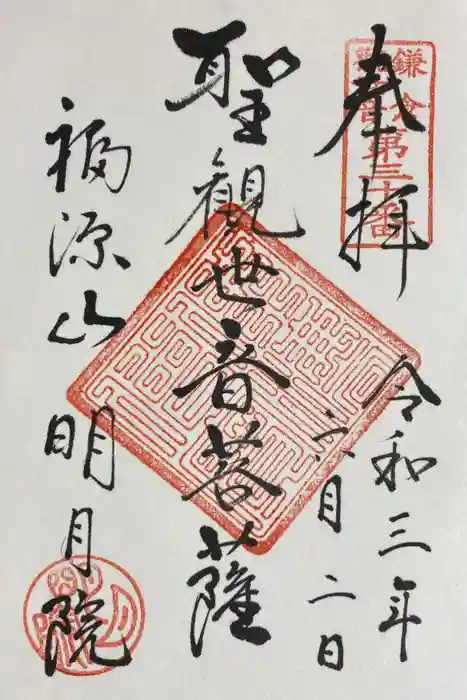 奉拝
鎌倉
観音第三十番
令和三年
六月二日
聖観世音菩薩
福源山明月院